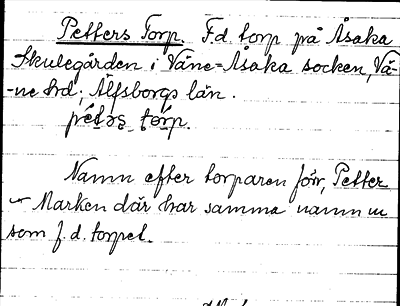 Petters Torp. F.d. torp på Åsaka
Skulegården i Väne-Åsaka socken, Vä-
-ne hrd; Älfsborgs län.
pétəs tórp.
Namn efter torparen förr, Petter
Marken där har samma namn
som f.d. torpet.